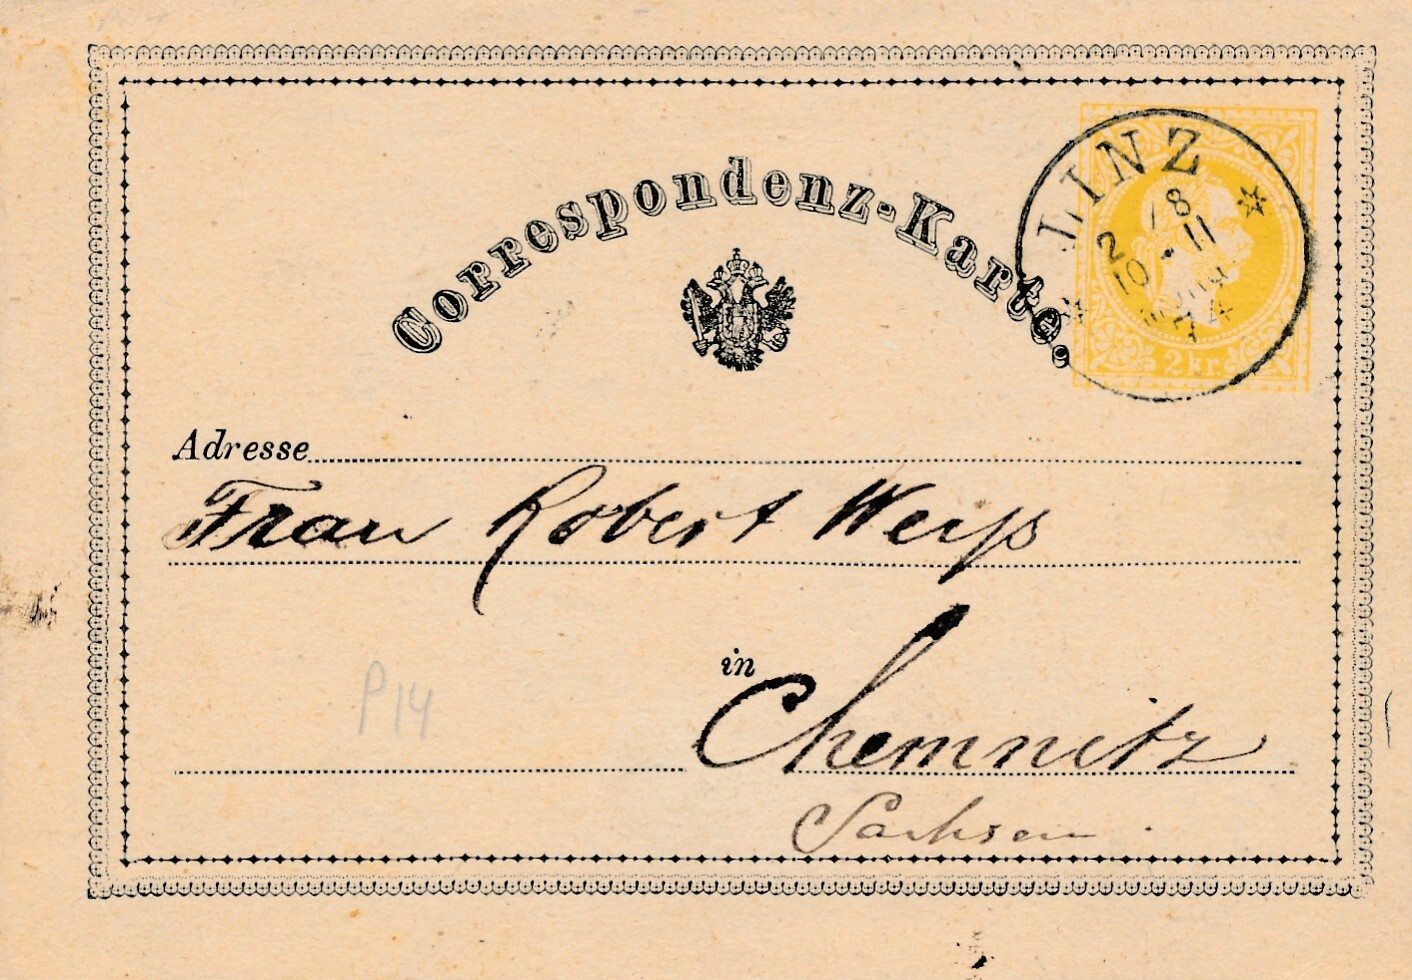 Correspondenz-Karte.
LINZ
2/8
10-11
74
2 kr.
Adresse
Frau Robert Weiß
in
Chemnitz
Sachsen.
P14